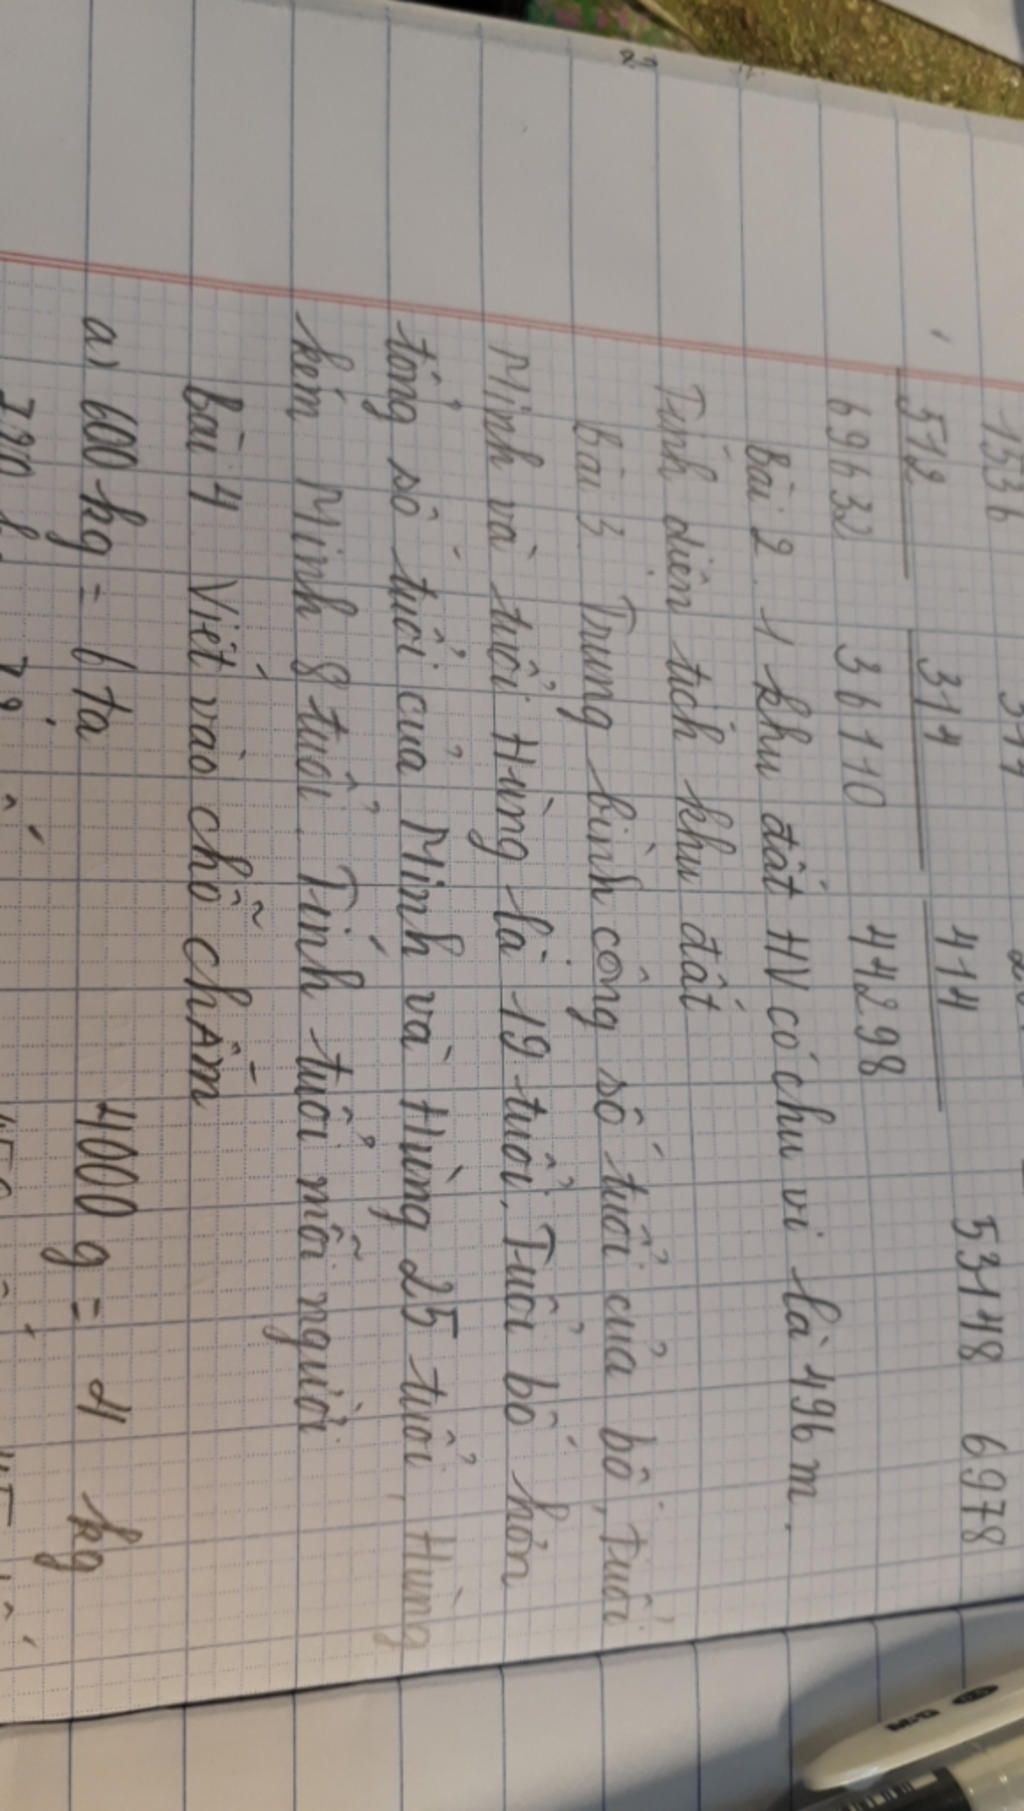 1536
512 314 414 53148 6978
69632 36110 44298
Bài 2. 1 khu đất HV có chu vi là 496 m.
Tính diện tích khu đất
Bài 3. Trung bình cộng số tuổi của bố, tuổi
Minh và tuổi Hùng là 19 tuổi, Tuổi bố hơn
tổng số tuổi của Minh và Hùng 25 tuổi, Hùng
kém Minh 8 tuổi. Tính tuổi mỗi người
Bài 4 Viết vào chỗ chấm
a) 600 kg = 6 Tạ 4000 g = 4 kg